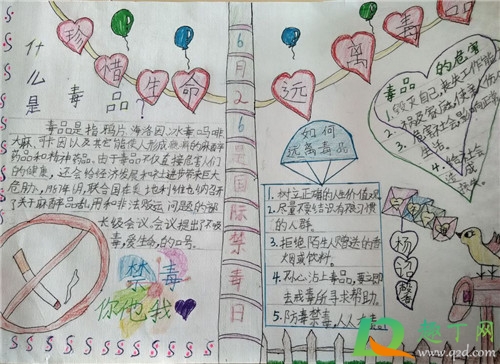 珍惜生命
远离毒品
什么是毒品?
毒品是指鸦片、海洛因、冰毒、吗啡、
大麻、
药品和精神药品,由于毒品不仅直接危害人们
的健康,还会给经济发展和社进步带来巨大
危胁,1987年6月,联合国在奥地利维也纳召开
了关于麻醉品滥用和非法贩运问题的部
长级会议。会议提出了"不吸
毒,爱生命"的口号。
禁毒
你他我
6月26是国际禁毒日
如何
远离毒品
1.树立正确的人生价值观
2.尽量不要结识有恶习惯
的人群。
3.拒绝陌生人赠送的香
烟或饮料。
4.不小心沾上毒品,要立即
去戒毒所寻求帮助。
5.防毒禁毒,人人有责。
毒品的危害
1.毁灭自己,丧失工作能
3.危害社会
生活。
4.给社会
造成
趣丁网
www.q2d.com